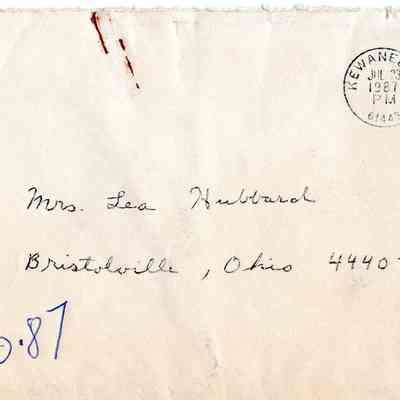 KEWANEE
JUL 23
1987
PM
61443
Mrs. Lea Hubbard
Bristolville, Ohio 4440
.87